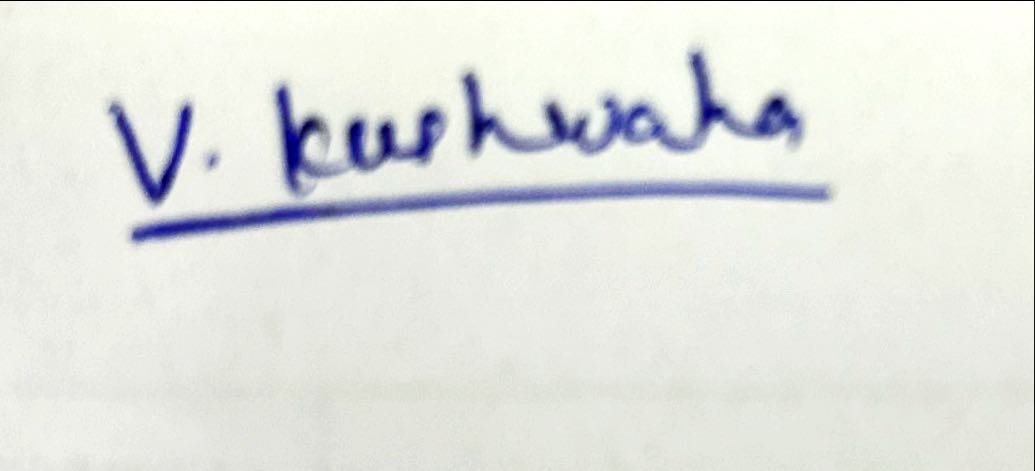 V. kushwaha